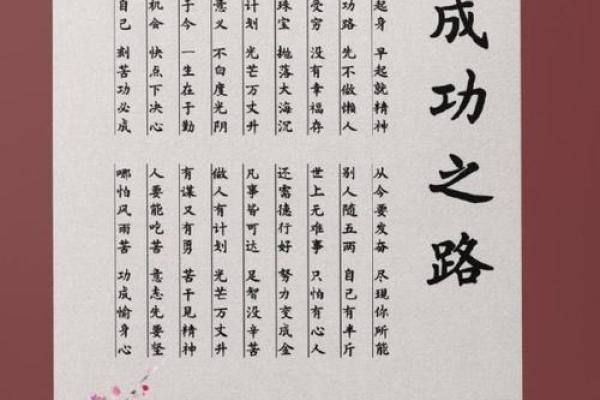 成功之路
起身 早起就精神
功路 先不做懒人
受穷 没有幸福存
珠宝 抛落大海沉
计划 光芒万丈升
意义 不白度光阴
于今 一生在于勤
机会 快点下决心
自己 刻苦功必成
从今要发奋 尽现你所能
别人随五两 自己有半斤
世上无难事 只怕有心人
还需德行好 努力变成金
凡事皆可达 足智没辛苦
做人有计划 光芒万丈升
有谋又有勇 苦干见精神
人要能吃苦 意志先要坚
哪怕风雨苦 功成愉身心